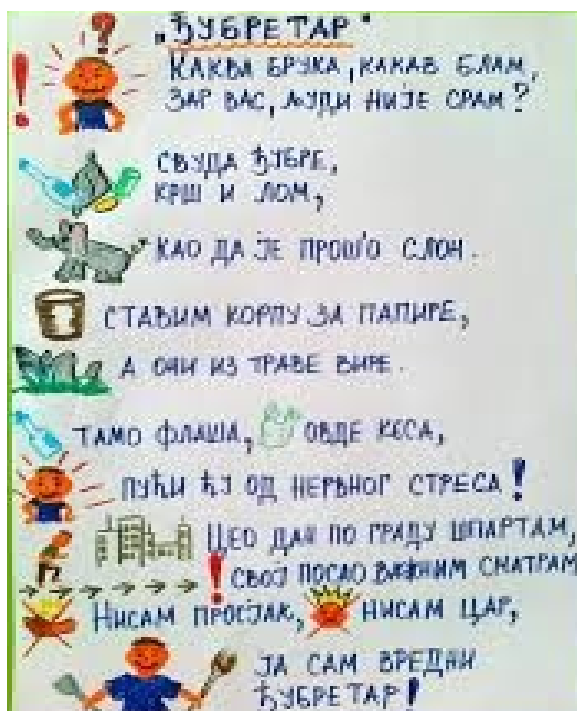 „ЂУБРЕТАР"
КАКВА БРУКА, КАКАВ БЛАМ,
ЗАР ВАС, ЉУДИ НИЈЕ СРАМ?
СВУДА ЂУБРЕ,
КРШ И ЛОМ,
КАО ДА ЈЕ ПРОШ'О СЛОН.
СТАВИМ КОРПУ ЗА ПАПИРЕ,
А ОНИ ИЗ ТРАВЕ ВИРЕ.
ТАМО ФЛАША, ОВДЕ КЕСА,
ПУЋИ ЋУ ОД НЕРВНОГ СТРЕСА!
ЦЕО ДАН ПО ГРАДУ ШПАРТАМ,
СВОЈ ПОСАО ВАЖНИМ СМАТРАМ
НИСАМ ПРОСЈАК, НИСАМ ЦАР,
ЈА САМ ВРЕДНИ
ЂУБРЕТАР!